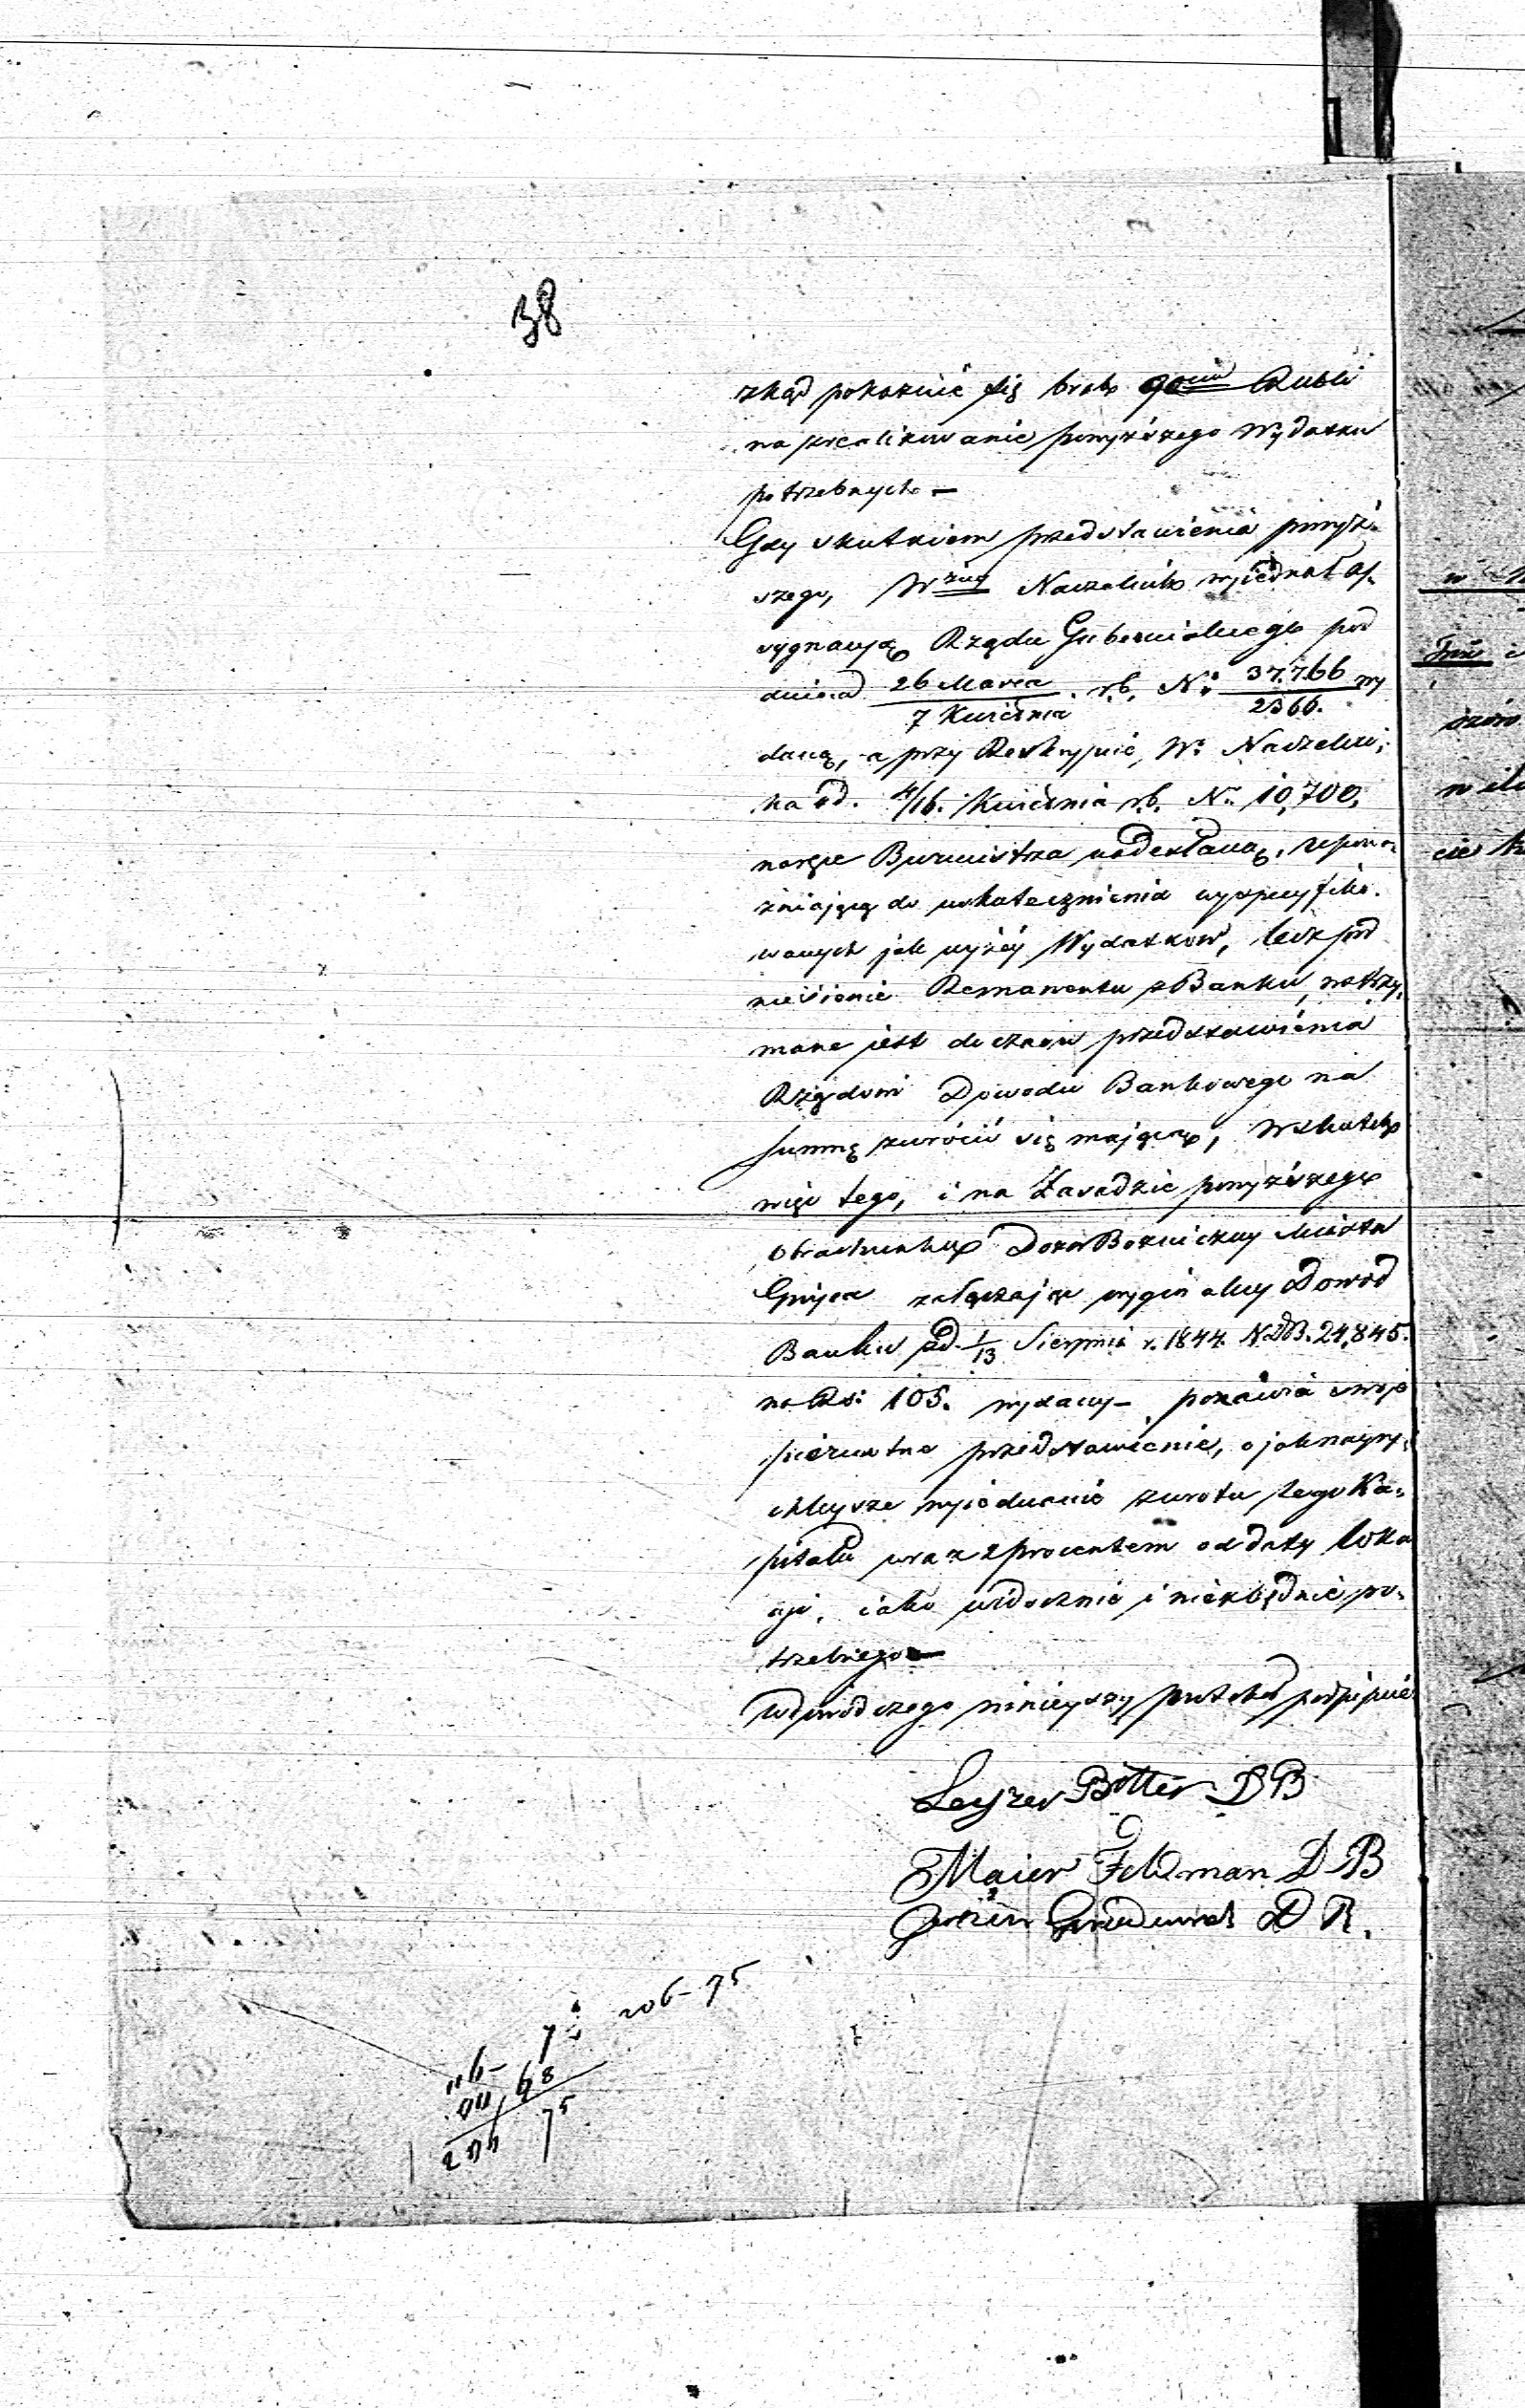 38
zkąd pokaznie się brak 90ciu Rubli
na zrealizowanie powyższego Wydatku
potrzebnych –
Gdy skutkiem przedstawienia powyż-
szego, Naczelnik wyiednał as-
sygnacyą Rządu Gubernialnego pod
dniem 26 Marca / 7 Kwietnia r.b. No 37.766 / 2366. wy
daną, a przy Reskrypcie, W. Naczelni-
ka od. 4/16. Kwietnia r.b. No 10,700.
na ręce Burmistrza nadesłaną, upowa-
żniającą do uskutecznienia wyspecyfiko-
wanych jak wyżey Wydatkow, lecz pod
niesienie Remanentu z Banku, wstrzy-
mane jest do czasu przedstawienia
Rządowi Dowodu Bankowego na
Summę zwrócić się mającą, W skutek
więc tego, i na Zasadzie powyższego
Obrachunku Dozór Bozniczny Miasta
załączając oryginalny Dowód
Banku od 1/13 Sierpnia r. 1844 24,845.
na Rs: 105. wydany – ponawia swoje
pierwotne przedstawienie, o jak nayry-
chleysze wyiednanie zwrotu tego Ka-
pitału wraz z procentem od daty loka
cyi, iako widocznie i niezbędnie po-
trzebnego –
W dowód czego ninieyszy protokół podpisuie
Leyzer Bitter DB
Maier Feldman DB
DB.
206-75
75